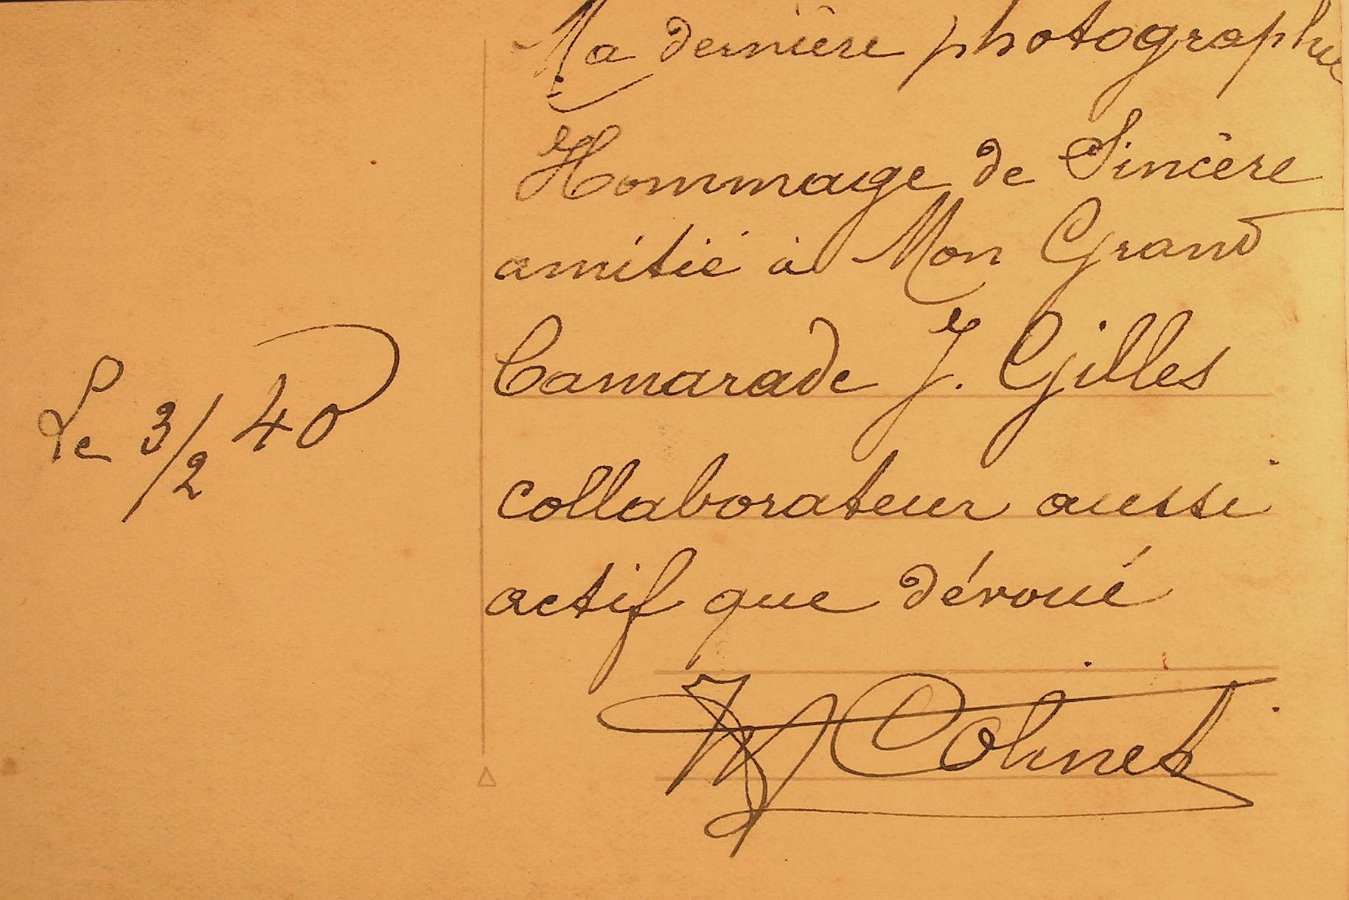 Ma dernière photographie
Hommage de Sincère
amitié à Mon Grand
Camarade J. Gilles
collaborateur aussi
actif que dévoué
Le 3/2 40